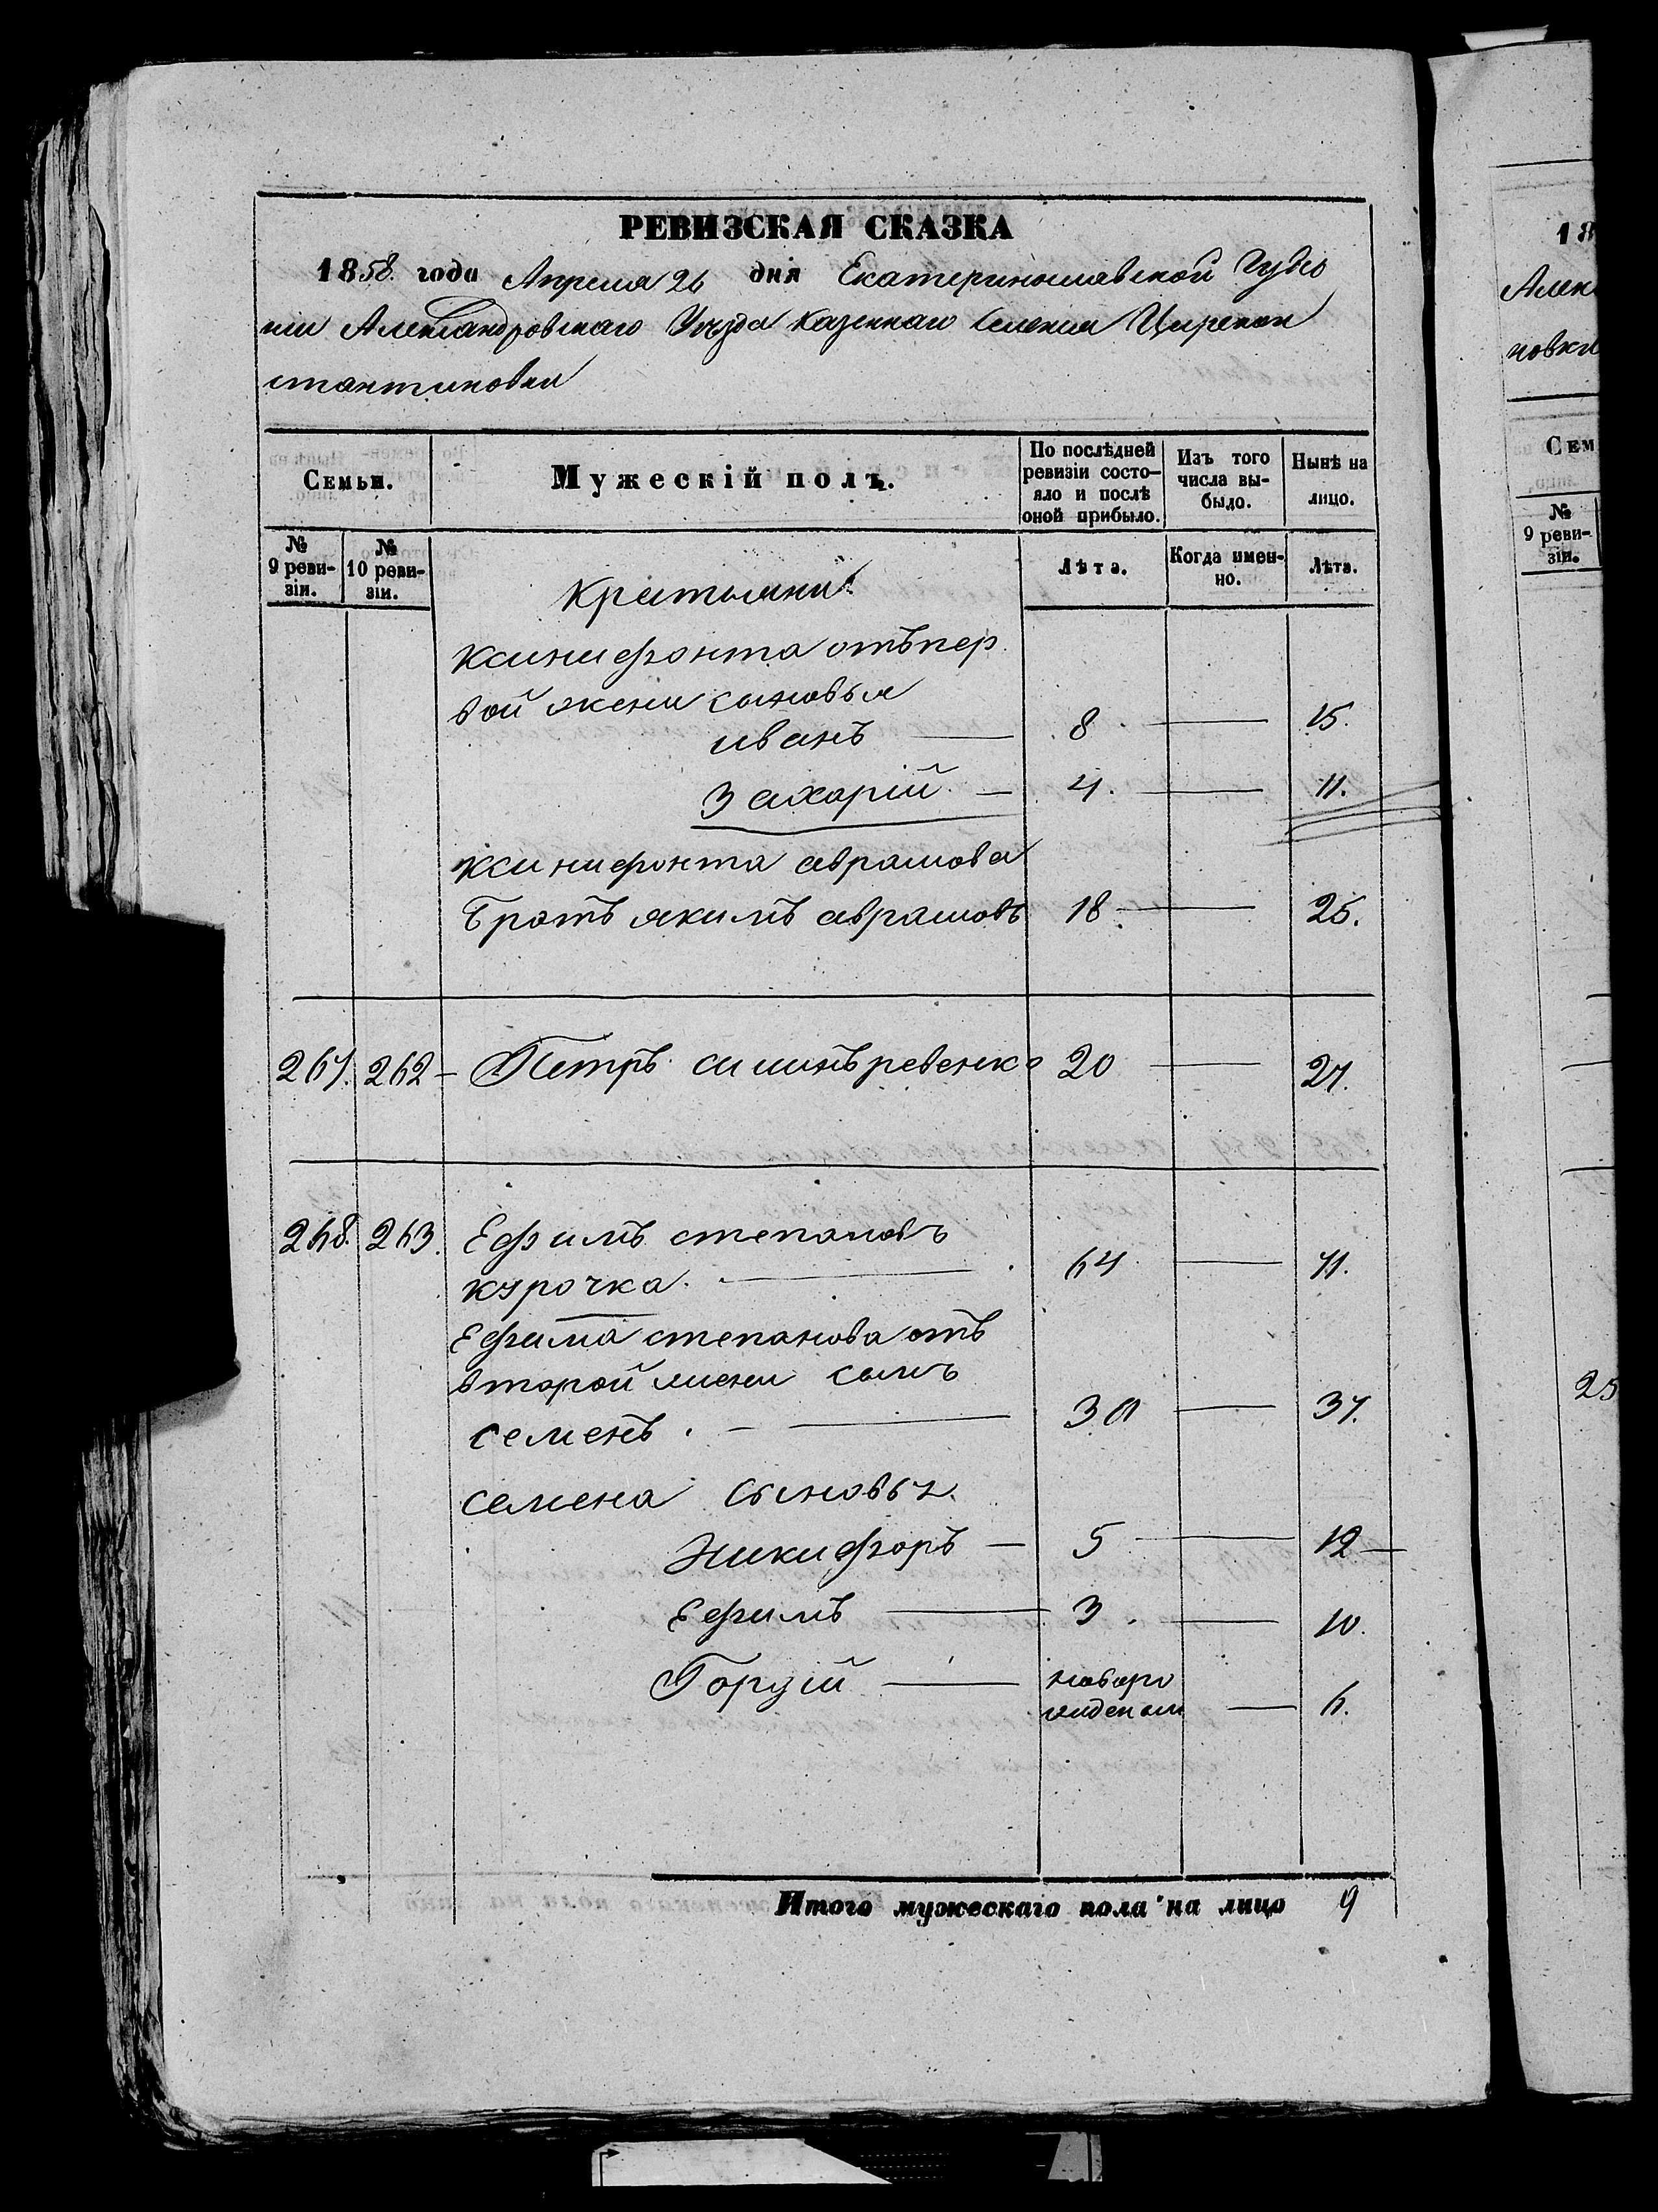 РЕВИЗСКАЯ СКАЗКА
1858. года Апреля 26 дня Екатеринославской Губер
ніи Александровскаго Уѣзда Казеннаго Селенія Цареконс
стантиновки
Семьи.
Мужескій полъ.
По послѣдней ревизіи состо-
яло и послѣ
оной прибыло.
Изъ того
числа вы-
было.
Нынѣ на
лицо.
№
9 реви-
зіи.
№
10 реви-
зіи.
Лѣта.
Когда имен-
но.
Лѣта.
Ксинифонта отъ пер
вой жены сыновья
иванъ 8 15.
Захарій 4. 11.
Ксинифонта аврамова
братъ якимъ аврамовъ 18 25.
267. 262 Петръ ревенко 20 27.
268. 263. Ефимъ степановъ
курочка. 64 71.
Ефима степанова отъ
второй жены сынъ
семенъ. 30 37.
семена сыновья.
Никифоръ 5 12
Ефимъ 3. 10.
Гордій новоро
жденый 6.
Итого мужескаго пола на лицо 9
18
Алек
новки
Сем
№
9 реви-
зіи.